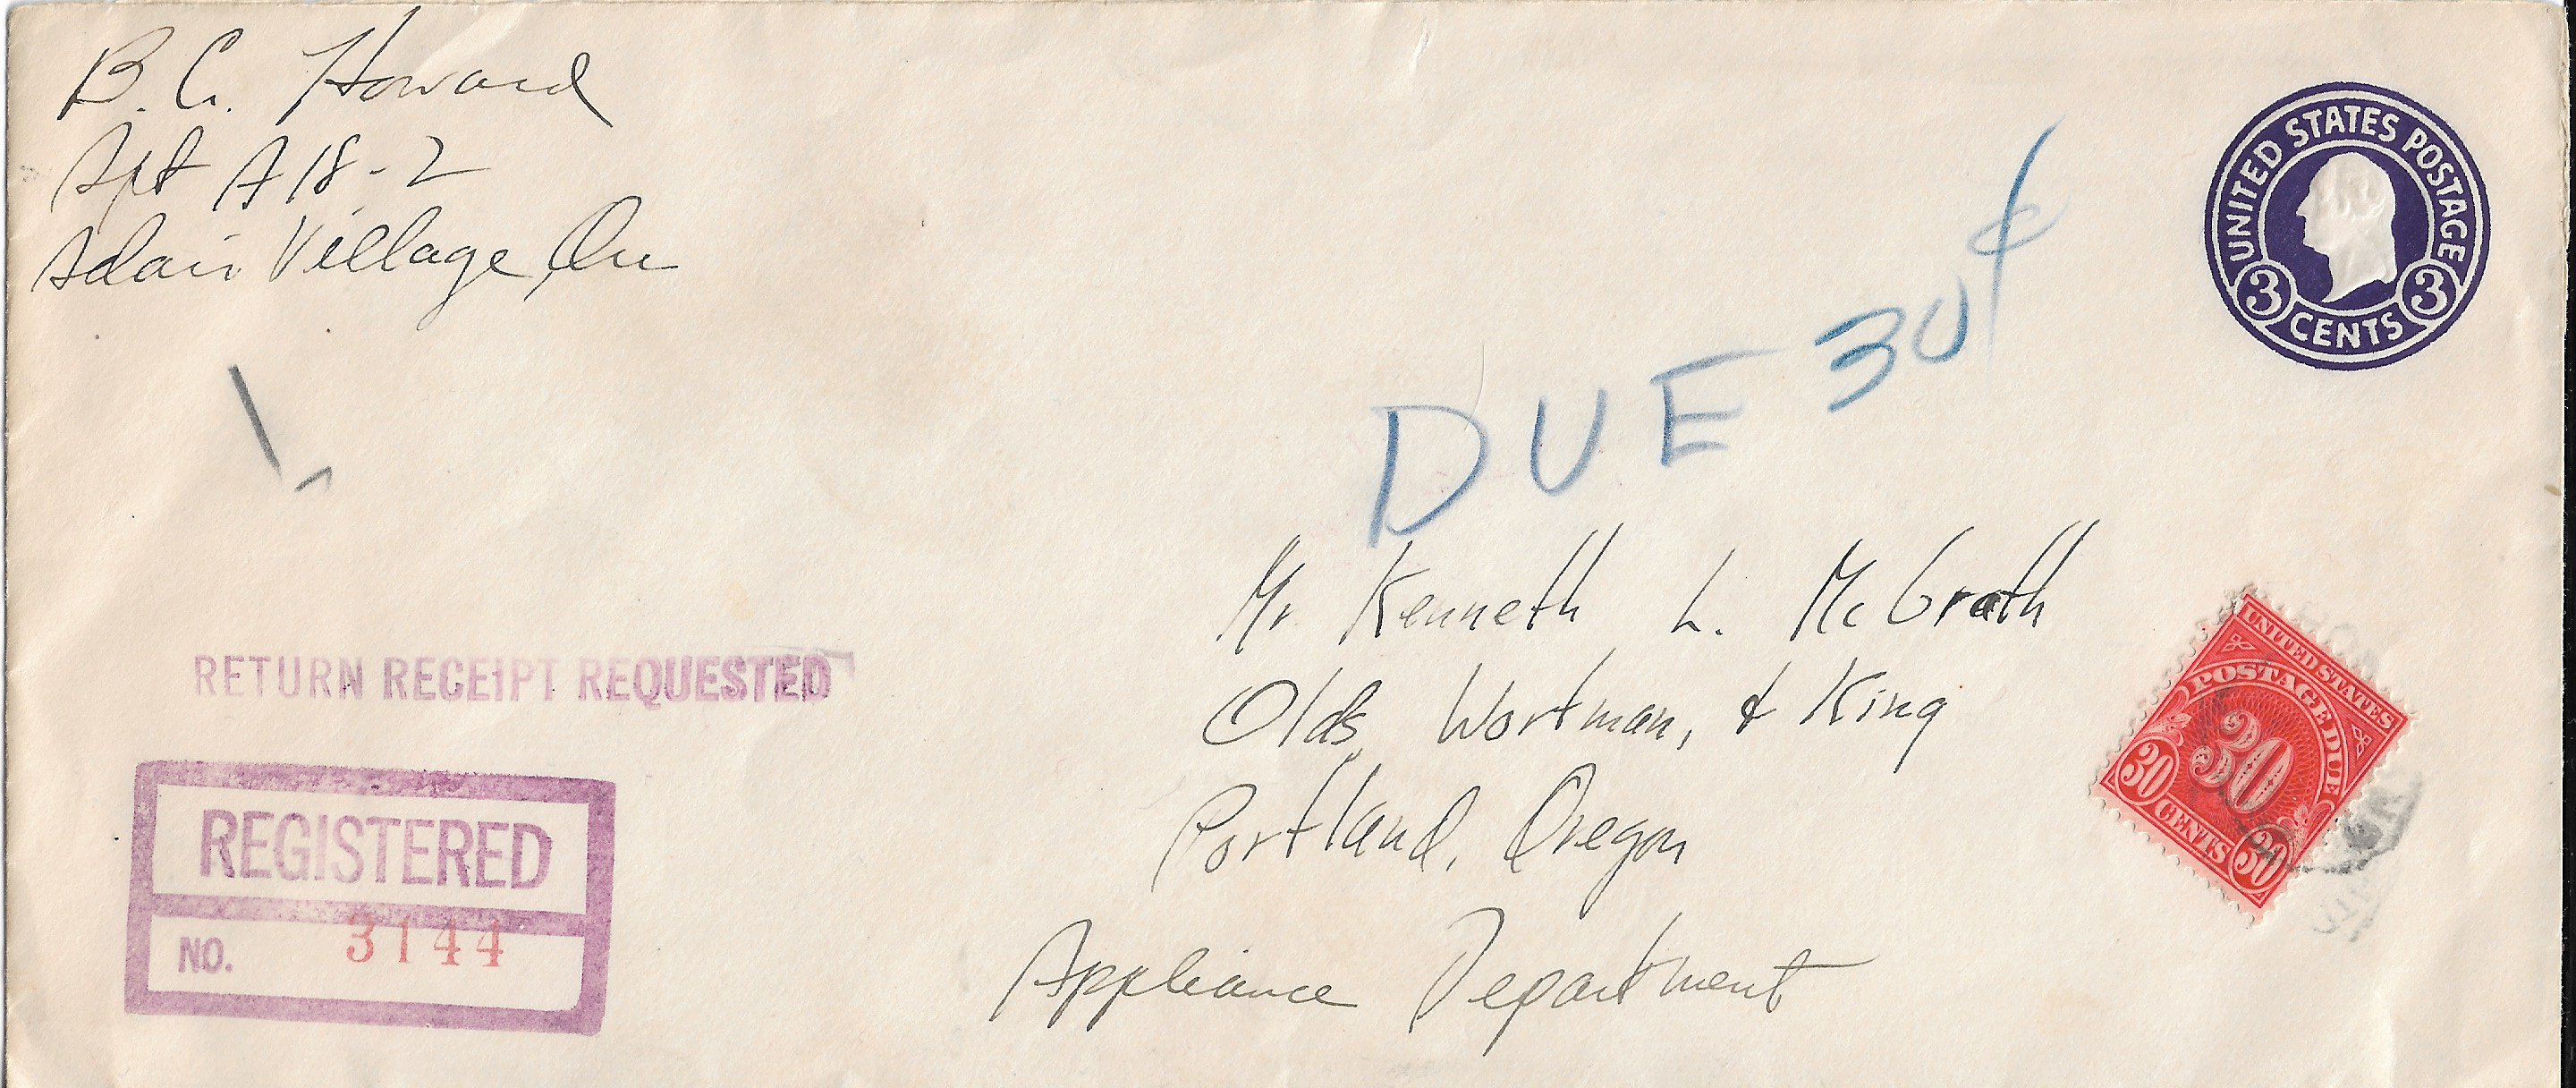 B. C. Howard
Apt A 18-2
Adair Village, Ore
UNITED STATES POSTAGE
3 CENTS 3
DUE 30¢
Mr Kenneth L. McGrath
Olds, Wortman, & King
Portland, Oregon
Appliance Department
RETURN RECEIPT REQUESTED
REGISTERED
NO. 3144
UNITED STATES
POSTAGE DUE
30
30 CENTS 30